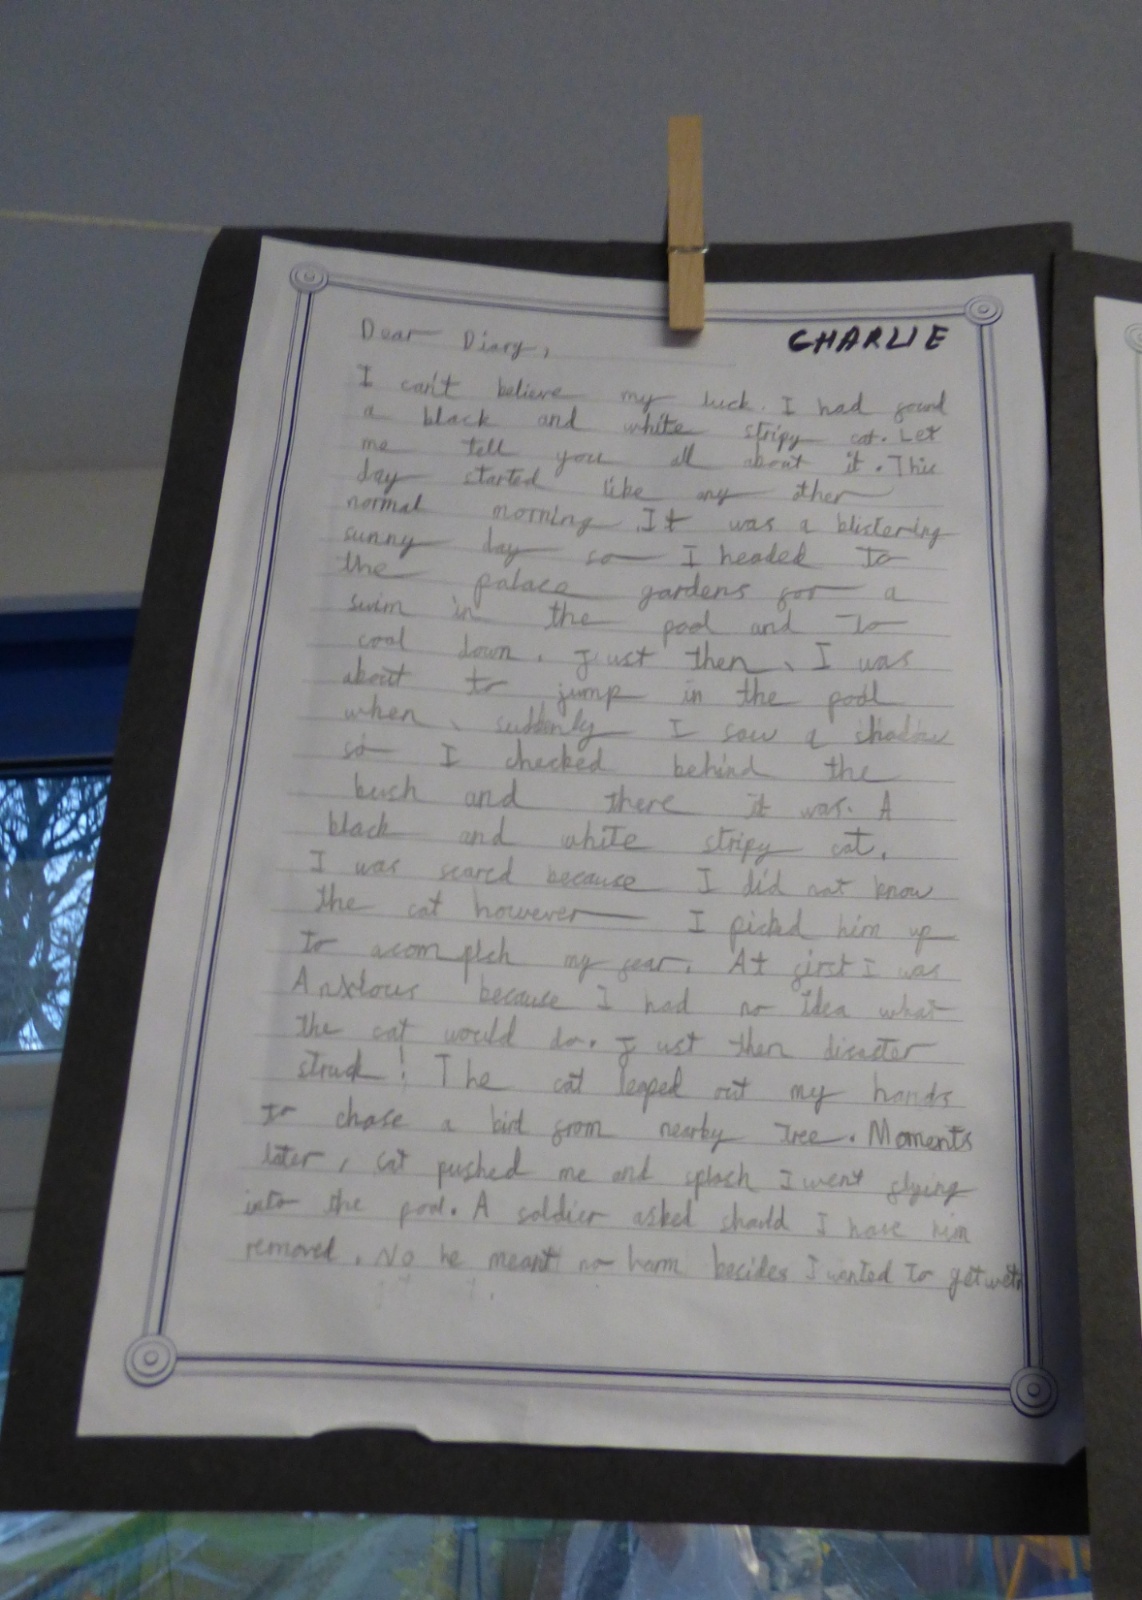 Dear Diary,
CHARLIE
I can't believe my luck. I had found
a black and white stripy cat. Let
me tell you all about it. This
day started like any other
normal morning. It was a blistering
sunny day so I headed to
the palace gardens for a
swim in the pool and to
cool down. Just then, I was
about to jump in the pool
when, suddenly I saw a shadow
so I checked behind the
bush and there it was. A
black and white stripy cat.
I was scared because I did not know
the cat however I picked him up
to acomplsh my fear. At first I was
Anxious because I had no idea what
the cat would do. Just then disaster
struck! The cat leaped out my hands
to chase a bird from nearby tree. Moments
later, cat pushed me and splash I went flying
into the pool. A soldier asked should I have him
removed. No he meant no harm besides I wanted to get wet